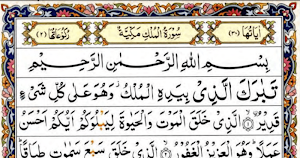 اٰیَاتُهَا (۳۰) سُوْرَةُ الْمُلْكِ مَكِّیَّةٌ رُكُوْعَاتُهَا (۲)
بِسْمِ اللّٰهِ الرَّحْمٰنِ الرَّحِیْمِ
تَبٰرَكَ الَّذِیْ بِیَدِهِ الْمُلْكُ وَهُوَ عَلٰی كُلِّ شَیْءٍ
قَدِیْرُ ۙ الَّذِیْ خَلَقَ الْمَوْتَ وَالْحَیٰوةَ لِیَبْلُوَكُمْ اَیُّكُمْ اَحْسَنُ
عَمَلًا وَهُوَ الْعَزِیْزُ الْغَفُوْرُ ۙ الَّذِیْ خَلَقَ سَبْعَ سَمٰوٰتٍ طِبَاقًا